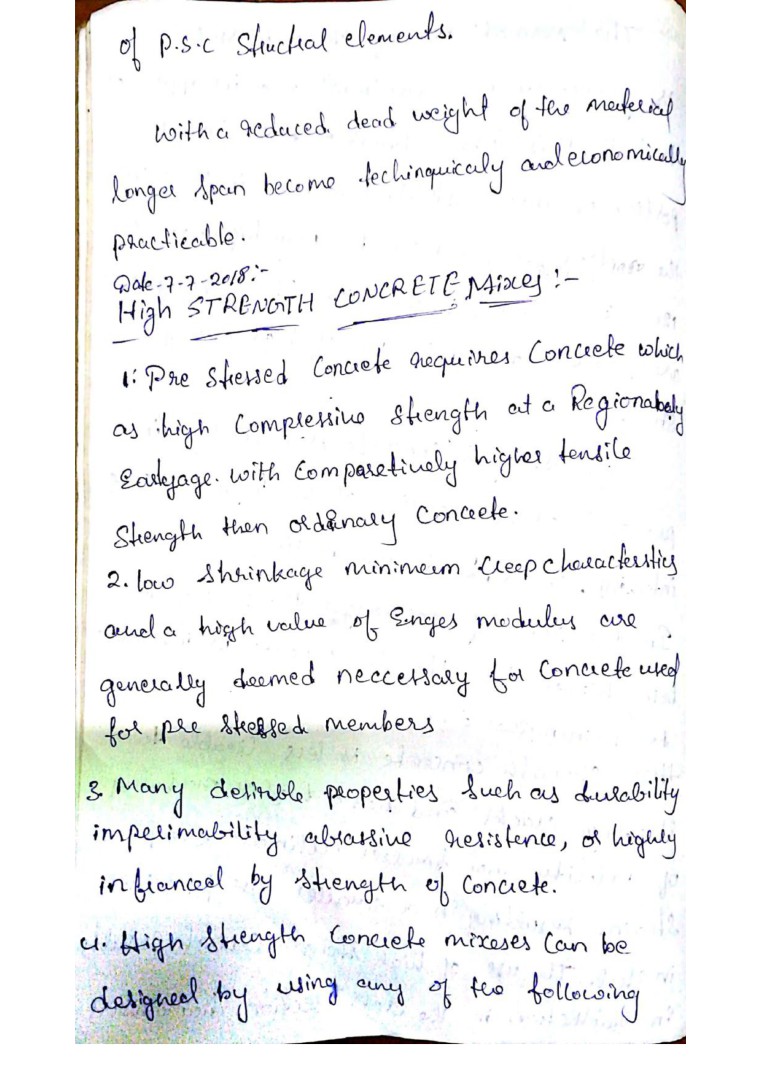 of P.S.C Stuctral elements.
With a reduced dead weight of the material
longer span become techinquicaly and economically
practicable.
Date-7-7-2018:-
High STRENGTH CONCRETE Mixes :-
1: Pre stressed Concrete requires Concrete which
as high Compressive strength at a Regionabaly
Earlyage. with Comparetively higher tensile
Strength then ordinary Concrete.
2. low shrinkage minimum Creep characterstics
and a high value of Enges modulus are
generally deemed neccessary for Concrete used
for pre stressed members
3. Many desirble properties Such as durability
imperimability abrassive resistence, or highly
infianced by strength of Concrete.
4. High Strength Concrete mixeses Can be
designed by using any of the following